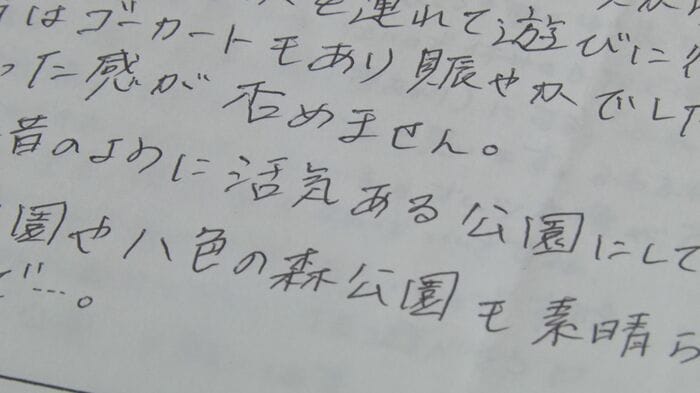 はゴーカートもあり賑やかでした
を連れて遊びに
った感が否めません。
昔のように活気ある公園にして
園や八色の森公園も素晴ら
ど…。